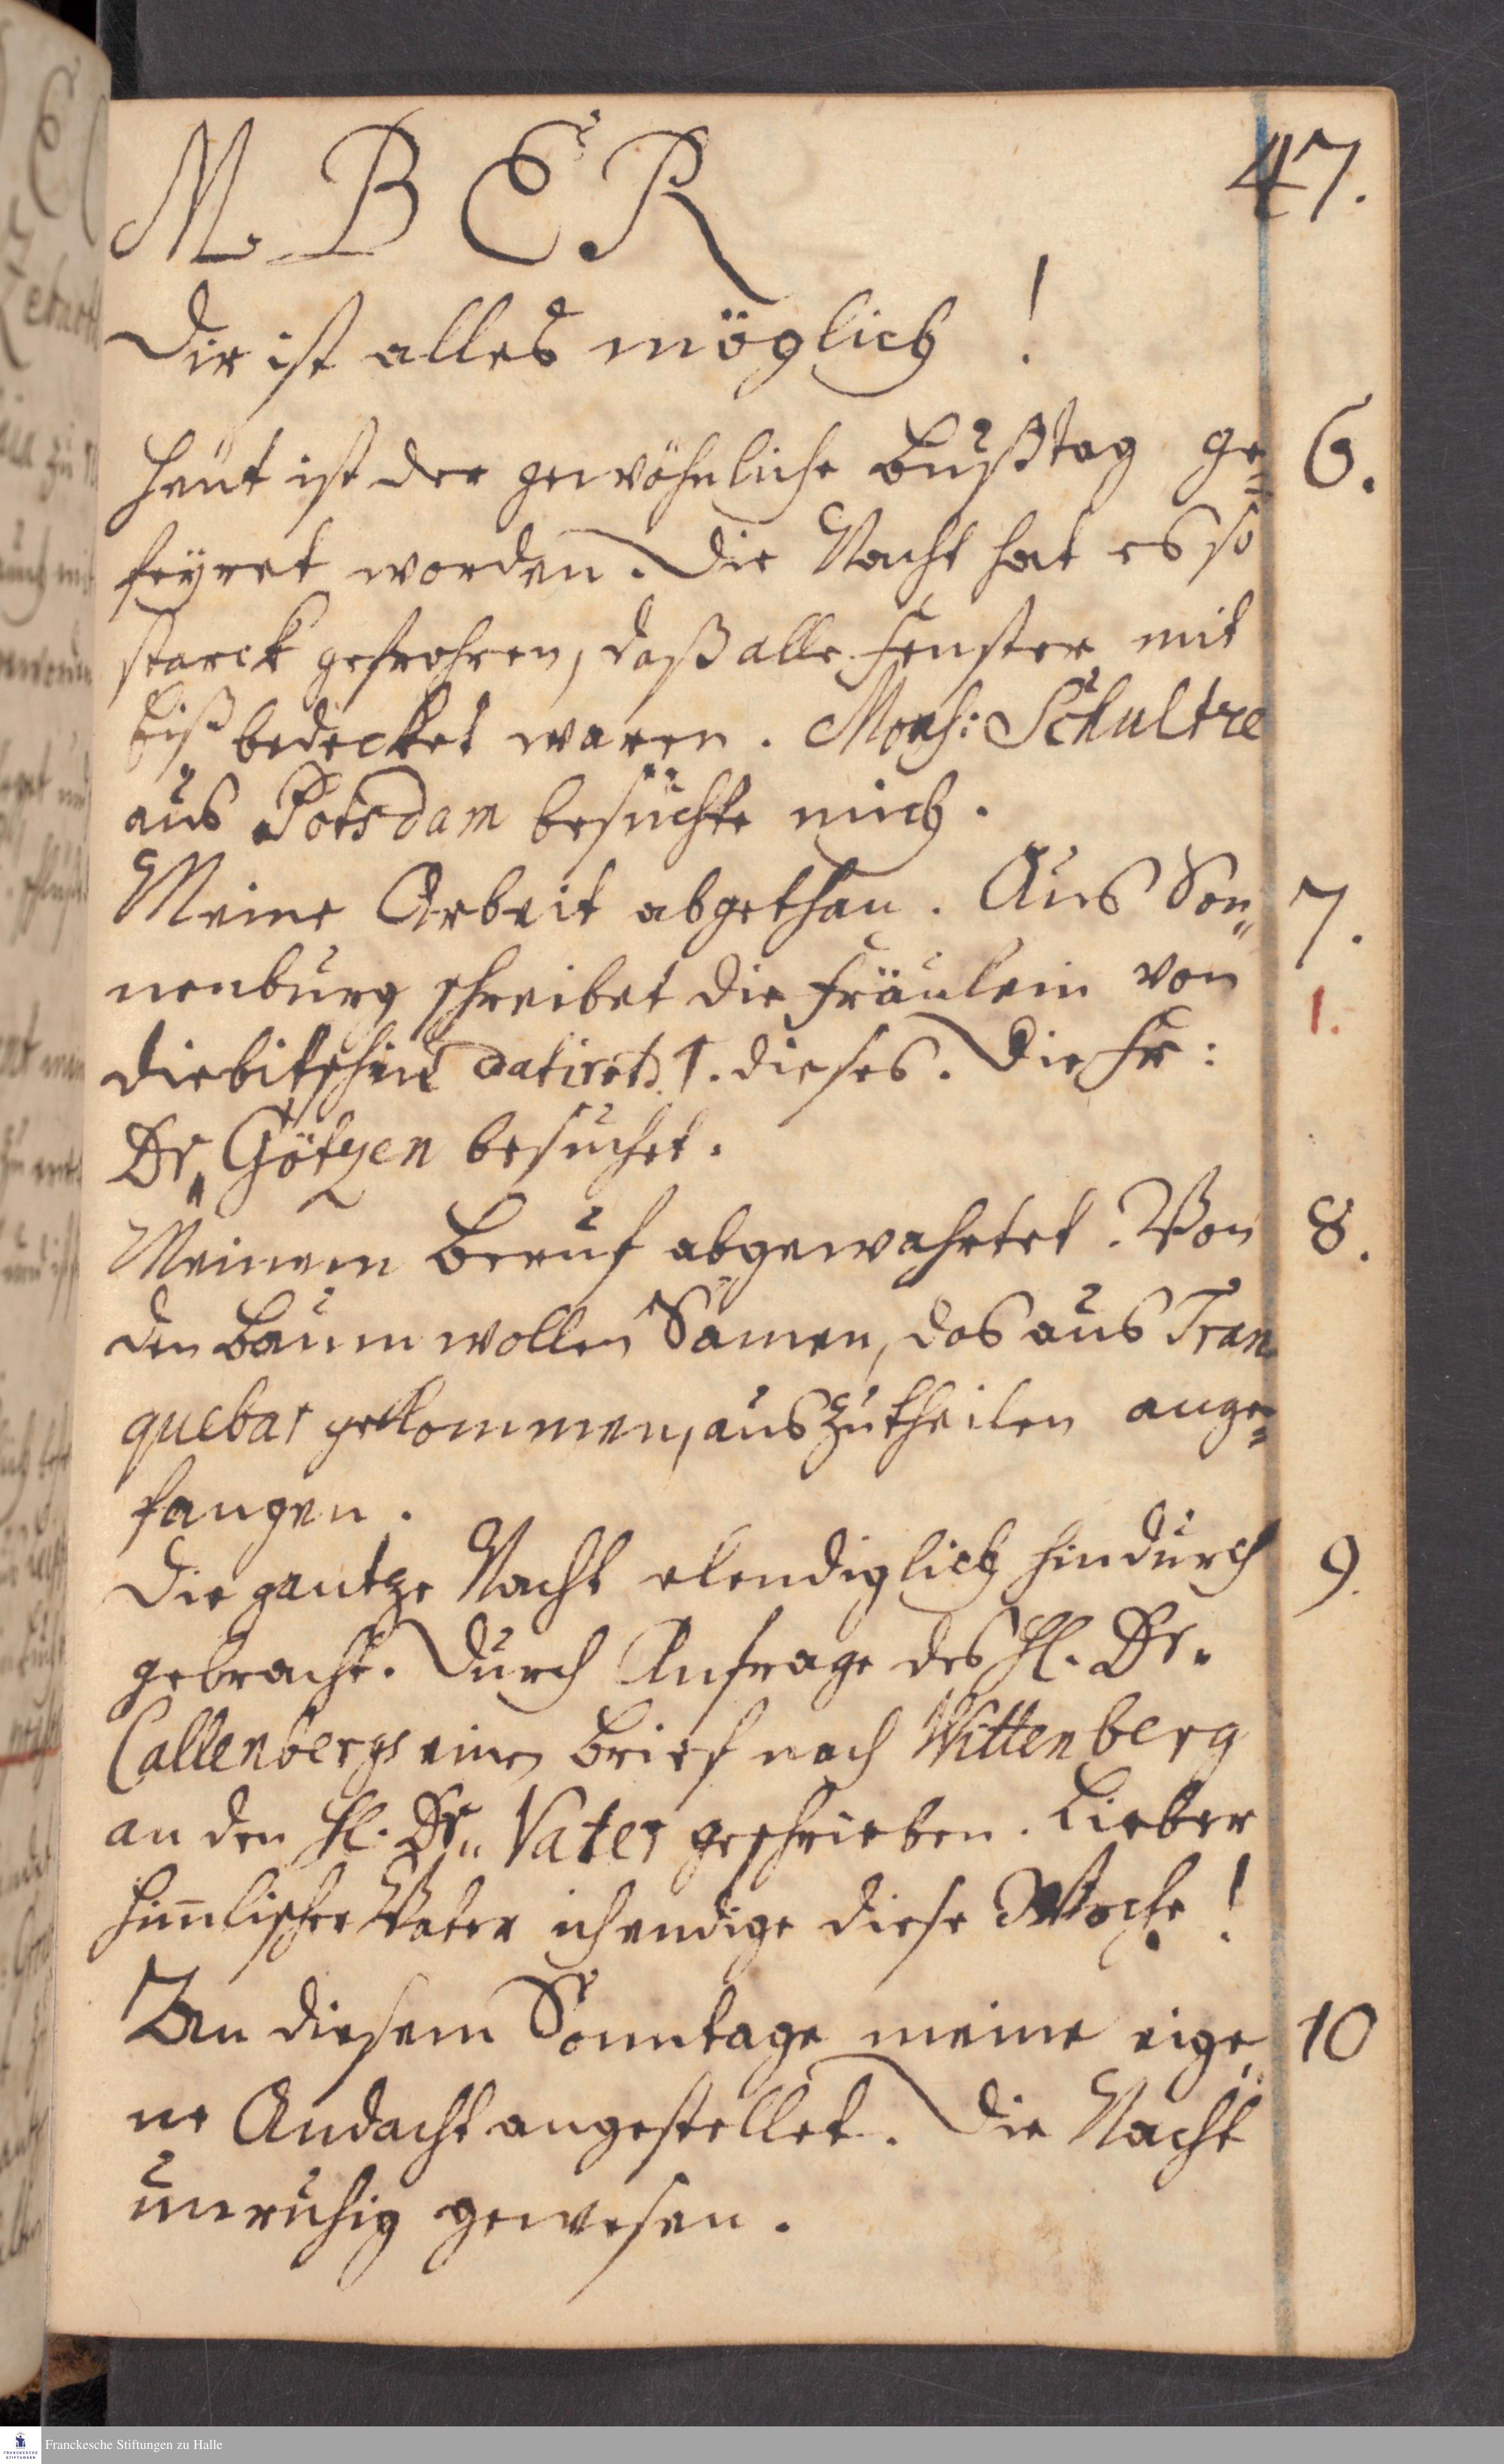 M. B E R
47.
Dir ist alles möglich !
Heut ist der gewöhnliche Bußtag ge= 6.
feyret worden. Die Nacht hat es so
starck gefrohren, daß alle Fenster mit
Eiß bedecket waren. Mons: Schultze
aus Potsdam besuchte mich.
Meine Arbeit abgethan. Aus Son= 7.
nenburg schreibet die Fräulein von 1.
Diebitschin datiret d. 1. dieses. Die Fr:
Dr. Götzen besuchet.
Meinem Beruf abgewahrtet. Von 8.
den Baumwollen Samen, das aus Tran
quebar gekommen, auszutheilen ange=
fangen.
Die gantze Nacht elendiglich hindurch 9.
gebracht. Durch Anfrage des H. Dr.
Callenbergs einen Brief nach Wittenberg
an den H. Dr. Vater geschrieben. Lieber
Himlischer Vater ich endige diese Woche !
An diesem Sonntage meine eige 10
ne Andacht angestellet. Die Nacht
unruhig gewesen.
Franckesche Stiftungen zu Halle